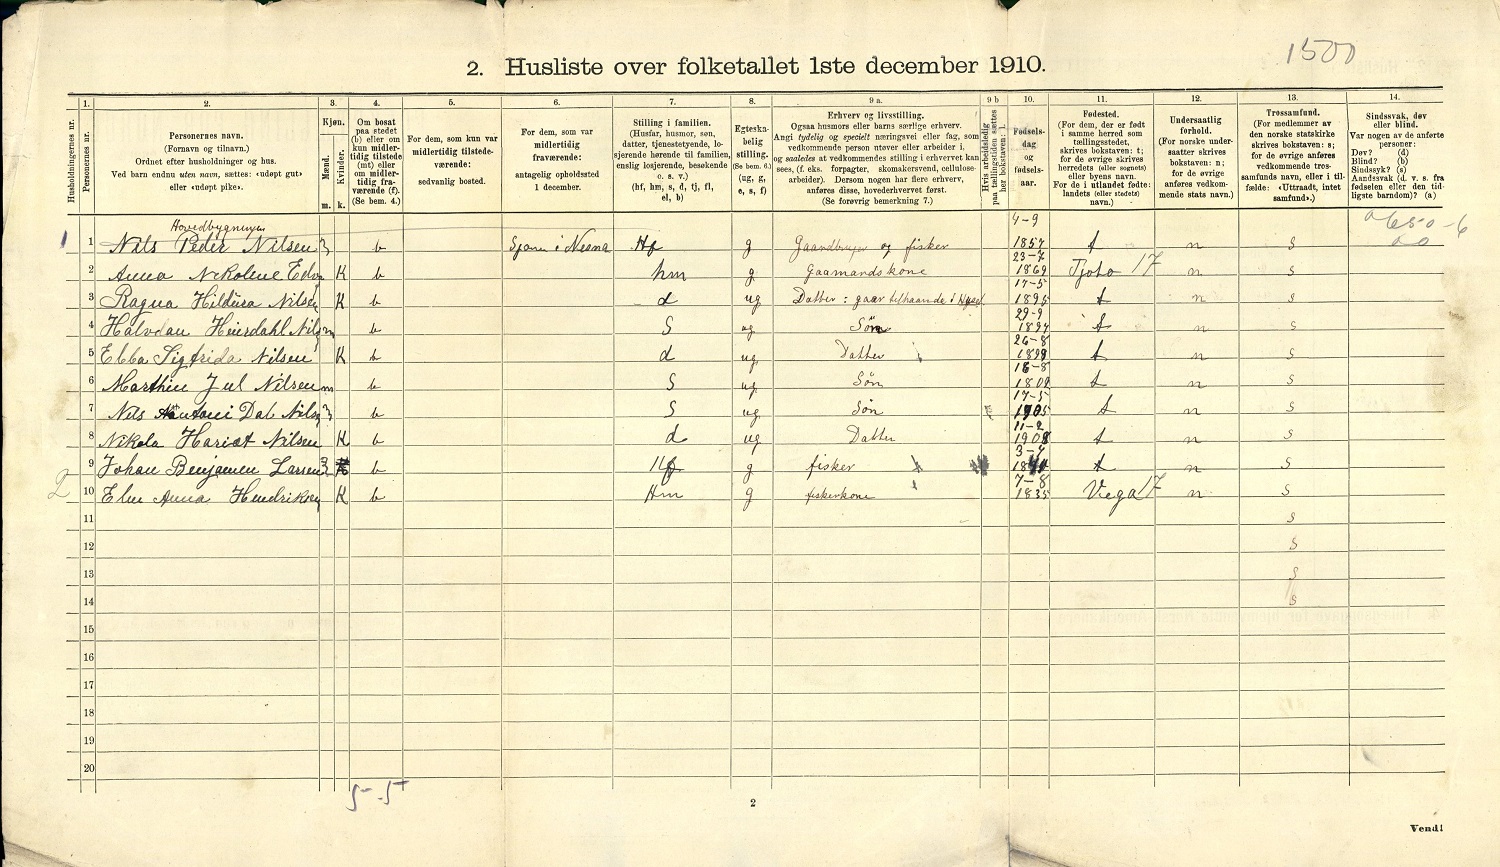 1500
2. Husliste over folketallet 1ste december 1910.
1. 2. 3. 4. 5. 6. 7. 8. 9 a. 9 b 10. 11. 12. 13. 14.
Husholdningernes nr.
Personernes nr.
Personernes navn.
(Fornavn og tilnavn.)
Ordnet efter husholdninger og hus.
Ved barn endnu uten navn, sættes: «udøpt gut»
eller «udøpt pike».
Kjøn.
Mænd.
Kvinder.
m. k.
Om bosat
paa stedet
(b) eller om
kun midler-
tidig tilstede
(mt) eller
om midler-
tidig fra-
værende (f).
(Se bem. 4.)
For dem, som kun var
midlertidig tilstede-
værende:
sedvanlig bosted.
For dem, som var
midlertidig
fraværende:
antagelig opholdssted
1 december.
Stilling i familien.
(Husfar, husmor, søn,
datter, tjenestetyende, lo-
sjerende hørende til familien,
enslig losjerende, besøkende
o. s. v.)
(hf, hm, s, d, tj, fl,
el, b)
Egteska-
belig
stilling.
(Se bem. 6.)
(ug, g,
e, s, f)
Erhverv og livsstilling.
Ogsaa husmors eller barns særlige erhverv.
Angi tydelig og specielt næringsvei eller fag, som
vedkommende person utøver eller arbeider i,
og saaledes at vedkommendes stilling i erhvervet kan
sees, (f. eks. forpagter, skomakersvend, cellulose-
arbeider). Dersom nogen har flere erhverv,
anføres disse, hovederhvervet først.
(Se forøvrig bemerkning 7.)
Hvis arbeidsledig
paa tællingstiden sættes
her bokstaven: l.
Fødsels-
dag
og
fødsels-
aar.
Fødested.
(For dem, der er født
i samme herred som
tællingsstedet,
skrives bokstaven: t;
for de øvrige skrives
herredets (eller sognets)
eller byens navn.
For de i utlandet fødte:
landets (eller stedets)
navn.)
Undersaatlig
forhold.
(For norske under-
saatter skrives
bokstaven: n;
for de øvrige
anføres vedkom-
mende stats navn.)
Trossamfund.
(For medlemmer av
den norske statskirke
skrives bokstaven: s;
for de øvrige anføres
vedkommende tros-
samfunds navn, eller i til-
fælde: «Uttraadt, intet
samfund».)
Sindssvak, døv
eller blind.
Var nogen av de anførte
personer:
Døv? (d)
Blind? (b)
Sindssyk? (s)
Aandssvak (d. v. s. fra
fødselen eller den tid-
ligste barndom)? (a)
Hovedbygningen
1 1 Nils Peder Nilsen m b Nesna Hf g Gaardbruger og fisker 4-9 1857 t n s
2 Anna Nikoline K b hm g Gaamandskone 23-7 1869 Tjøtø 17 n s
3 Ragna Hildura Nilsen K b d ug Datter: 17-5 1895 t n s
4 Halvdan Heierdahl m b S ug Søn 29-9 1897 t n s
5 Ebba Sigfrida Nilsen K b d ug Datter 26-8 1899 t n s
6 Marthin Jul Nilsen m b S ug Søn 16-8 1902 t n s
7 Nils Antoni Dal m b S ug Søn 17-5 1905 t n s
8 Nikola Hariæt Nilsen K b d ug Datter 11-2 1908 t n s
2 9 Johan Benjamin Larsen m b Hf g fisker t n s
10 Elen Anna K b Hm g fiskerkone 7-8 1835 Vega 17 n s
11 s
12 s
13 s
14 s
15
16
17
18
19
20
5-5
2
Vend!